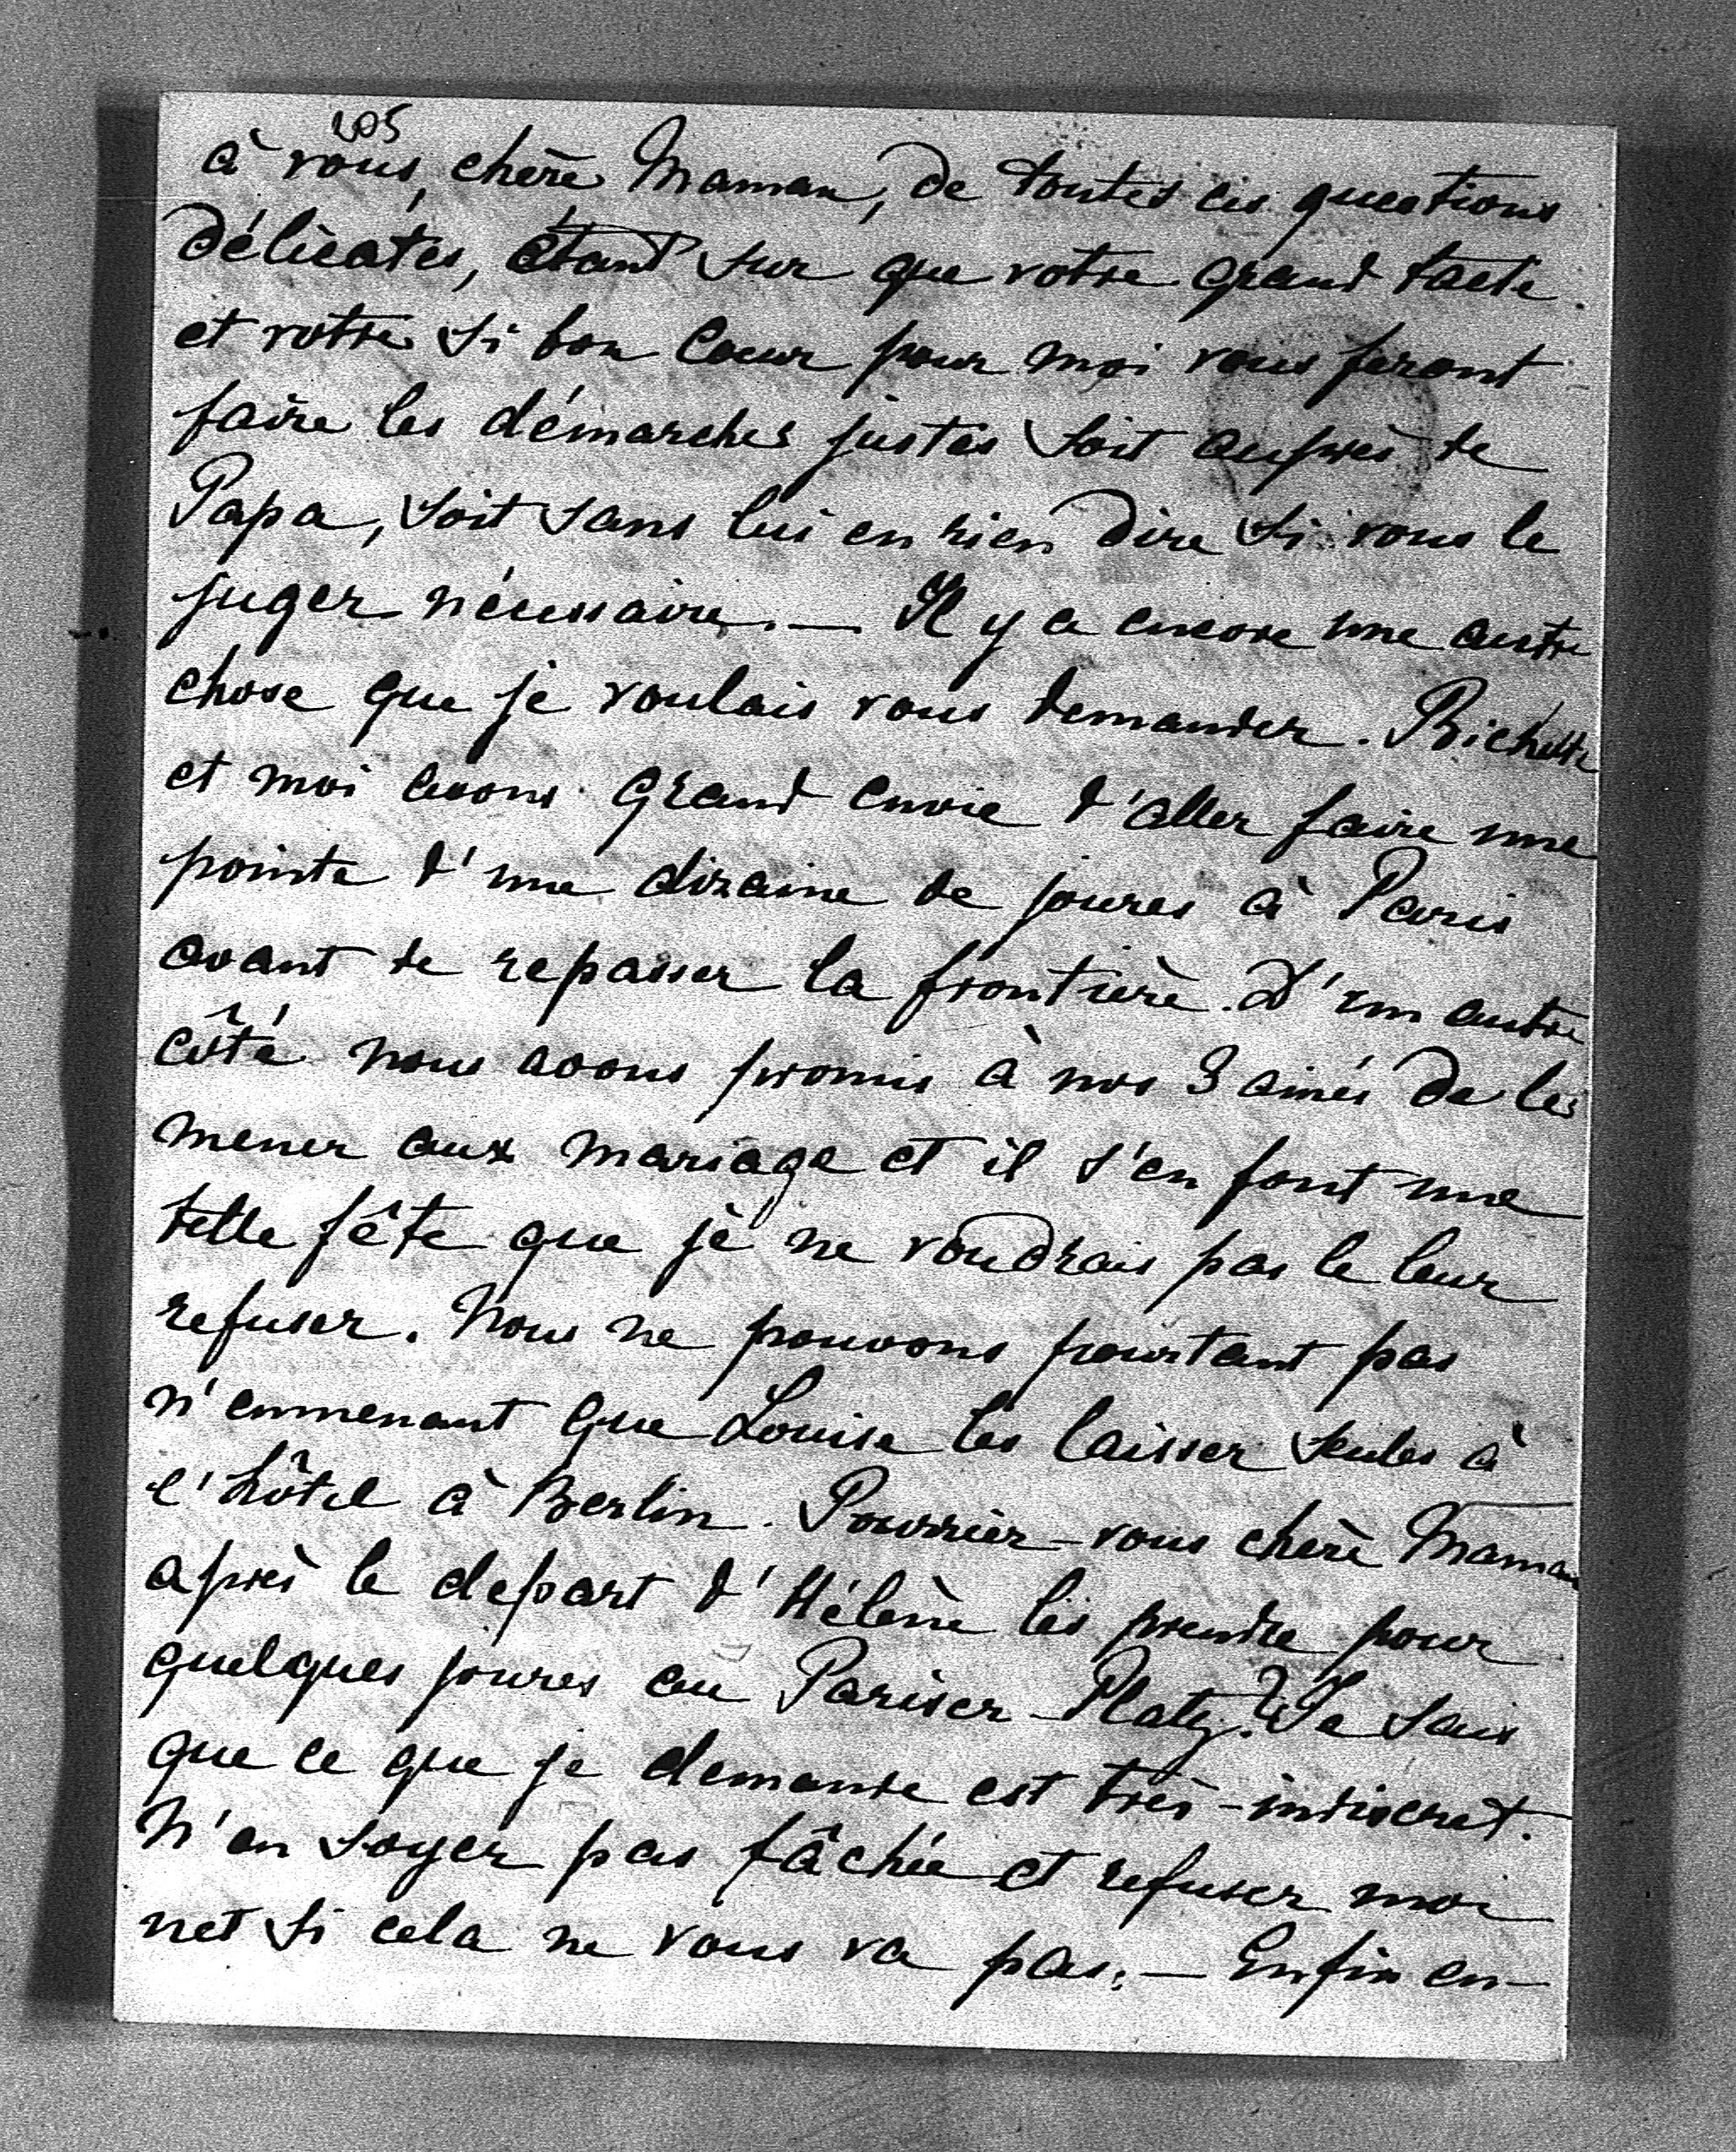 205
à vous, chère Maman, de toutes ces questions
délicates, étant sur que votre grand tacte
et votre si bon coeur pour moi vous feront
faire les démarches justes soit auprès de
Papa, soit sans lui en rien dire si vous le
juger nécessaire. — Il y a encore une autre
chose que je voulais vous demander. Bichette
et moi avons grand envie d'aller faire une
pointe d'une dizaine de joures à Paris
avant de repasser la frontière. D'un autre
côté nous avons promis à nos 3 ainés de les
mener aux mariage et il s'en font une
telle fête que je ne voudrais pas le leur
refuser. Nous ne pouvons pourtant pas
n'emmenant que Louise les laisser seules à
l'hôtel à Berlin. Pourrièr-vous chère Maman
après le depart d'Hélène les prendre pour
quelques joures au Pariser-Platz? Je sais
que ce que je demande est très-indiscret.
N'en soyer pas fâchée et refuser moi
net si cela ne vous va pas. — Enfin en-